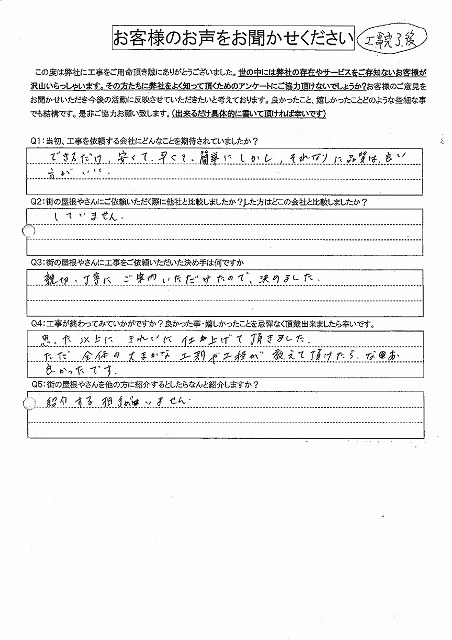 お客様のお声をお聞かせください
工事完了後
この度は弊社に工事をご用命頂き誠にありがとうございました。世の中には弊社の存在やサービスをご存知ないお客様が
沢山いらっしゃいます。その方たちに弊社をよく知って頂くためのアンケートにご協力頂けないでしょうか？お客様のご意見を
お聞かせいただき今後の活動に反映させていただきたいと考えております。良かったこと、嬉しかったことどのような些細な事
でも結構です。是非ご協力お願い致します。（出来るだけ具体的に書いて頂ければ幸いです）
Q1：当初、工事を依頼する会社にどんなことを期待されていましたか？
できるだけ、安くて、早くて、簡単に しかし、それなりに品質は、良い
方がいい。
Q2：街の屋根やさんにご依頼いただく際に他社と比較しましたか？した方はどこの会社と比較しましたか？
していません。
Q3：街の屋根やさんに工事をご依頼いただいた決め手は何ですか
親切、丁寧に ご案内いただけたので、決めました。
Q4：工事が終わってみていかがですか？良かった事・嬉しかったことを忌憚なく頂戴出来ましたら幸いです。
思った以上に きれいに 仕上げて 頂きました。
ただ 全体の大まかな 工期や工程が 教えて頂けたら、なお
良かったです。
Q5：街の屋根やさんを他の方に紹介するとしたらなんと紹介しますか？
紹介する相手がいません